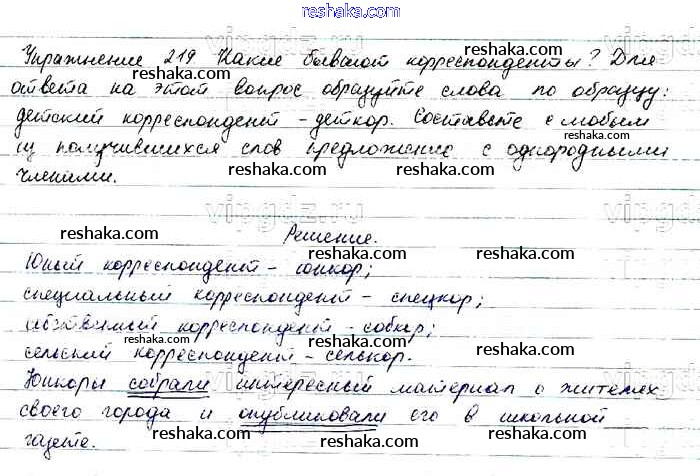 reshaka.com
Упражнение 219 Какие бывают корреспонденты? Для
ответа на этот вопрос образуйте слова по образцу:
детский корреспондент - деткор. Составьте с любым
из получившихся слов предложение с однородными
членами.
Решение.
Юный корреспондент - юнкор;
специальный корреспондент - спецкор;
собственный корреспондент - собкор;
сельский корреспондент - селькор.
Юнкоры собрали интересный материал о жителях
своего города и опубликовали его в школьной
газете.